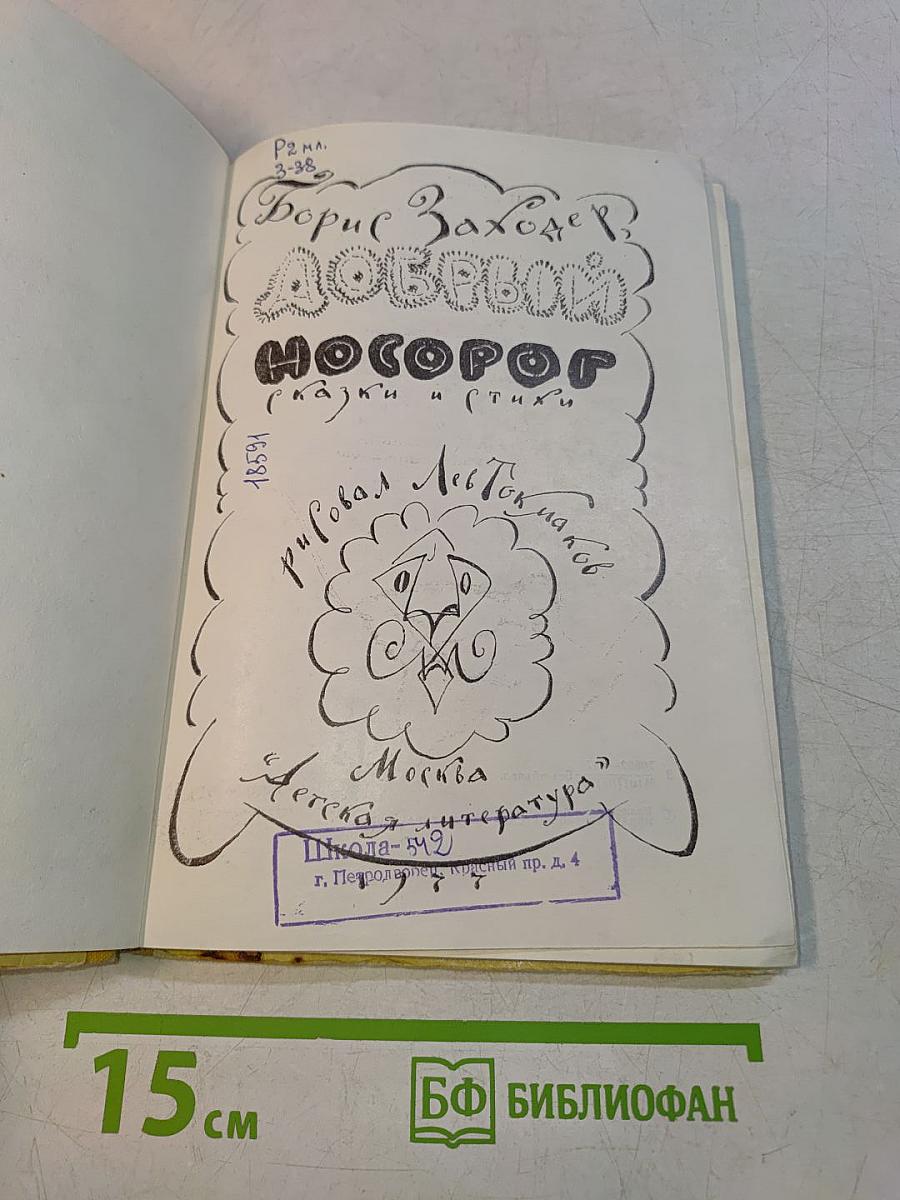 Р2 мл.
З-38
Борис Заходер
ДОБРЫЙ
НОСОРОГ
сказки и стихи
18591
рисовал Лев Токмаков
Москва
"Детская литература"
Школа-542
г. Петродворец, Красный пр. д. 4
1977
15 см
БФ БИБЛИОФАН